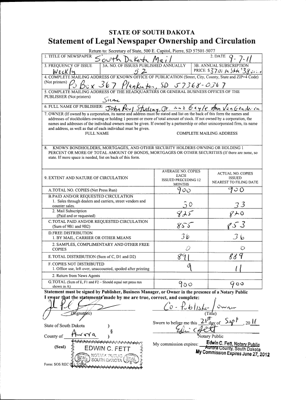 STATE OF SOUTH DAKOTA
Statement of Legal Newspaper Ownership and Circulation
Return to: Secretary of State, 500 E Capitol, Pierre, SD 57501-5077
1. TITLE OF NEWSPAPER South Dakota Mail 2. DATE 9-7-11
3. FREQUENCY OF ISSUE Weekly
3A. NO. OF ISSUES PUBLISHED ANNUALLY 52
3B. ANNUAL SUBSCRIPTION PRICE
4. COMPLETE MAILING ADDRESS OF KNOWN OFFICE OF PUBLICATION (Street, City, County, State and ZIP+4 Code)
(Not printers) P.O. Box 367 Plankinton, SD 57368-0367
5. COMPLETE MAILING ADDRESS OF THE HEADQUARTERS OR GENERAL BUSINESS OFFICES OF THE PUBLISHER (Not printers)
Same
6. FULL NAME OF PUBLISHER: John Paul Studeny, Jr. and Gayle Van Genderen
7. OWNER (If owned by a corporation, its name and address must be stated and also the names and addresses of stockholders owning or holding 1 percent or more of total amount of stock. If not owned by a corporation, the names and addresses of the individual owners must be given. If owned by a partnership or other unincorporated firm, its name and address, as well as that of each individual must be given.
FULL NAME COMPLETE MAILING ADDRESS
8. KNOWN BONDHOLDERS, MORTGAGES, AND OTHER SECURITY HOLDERS OWNING OR HOLDING 1 PERCENT OR MORE OF TOTAL AMOUNT OF BONDS, MORTGAGES OR OTHER SECURITIES (If there are none, so state. If more space is needed, list on back of this form.
9. EXTENT AND NATURE OF CIRCULATION
AVERAGE NO. COPIES EACH ISSUE PRECEDING 12 MONTHS
ACTUAL NO. COPIES ISSUED NEAREST TO FILING DATE
A. TOTAL NO. COPIES (Net Press Run) 900 900
B. PAID AND/OR REQUESTED CIRCULATION
1. Sales through dealers and carriers, street vendors and counter sales. 30 33
2. Mail Subscription (Paid and/or requested) 825 820
C. TOTAL PAID AND/OR REQUESTED CIRCULATION (Sum of 9B1 and 9B2) 855 853
D. FREE DISTRIBUTION
1. BY MAIL, CARRIER OR OTHER MEANS 36 36
2. SAMPLES, COMPLIMENTARY AND OTHER FREE COPIES 0 0
E. TOTAL DISTRIBUTION (Sum of C, D1 and D2) 891 889
F. COPIES NOT DISTRIBUTED
1. Office use, left over, unaccounted, spoiled after printing 9 11
2. Return from News Agents
G. TOTAL (Sum of E, F1 and F2 - Should equal net press run shown in A) 900 900
Statement must be signed by Publisher, Business Manager, or Owner in the presence of a Notary Public
I swear that the statements made by me are true, correct, and complete:
Co-Publisher/owner
(Signature) (Title)
State of South Dakota )
County of Aurora ) §
Sworn to before me this day of Sept 2011
Notary Public
(Seal)
EDWIN C. FETT
NOTARY PUBLIC
SOUTH DAKOTA
My commission expires:
Edwin C. Fett, Notary Public
Aurora County, South Dakota
My Commission Expires June 27, 2012